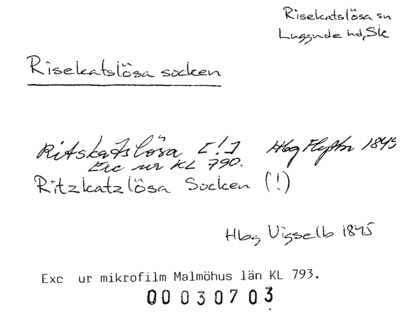 Risekatslösa sn
Luggude hd, Sk
Risekatslösa socken
Ritskatslösa [!] Hbg Flyttn 1845
Exc ur KL 790.
Ritzkatzlösa Socken (!)
Hbg Vigselb 1845
Exc ur mikrofilm Malmöhus län KL 793.
00030703